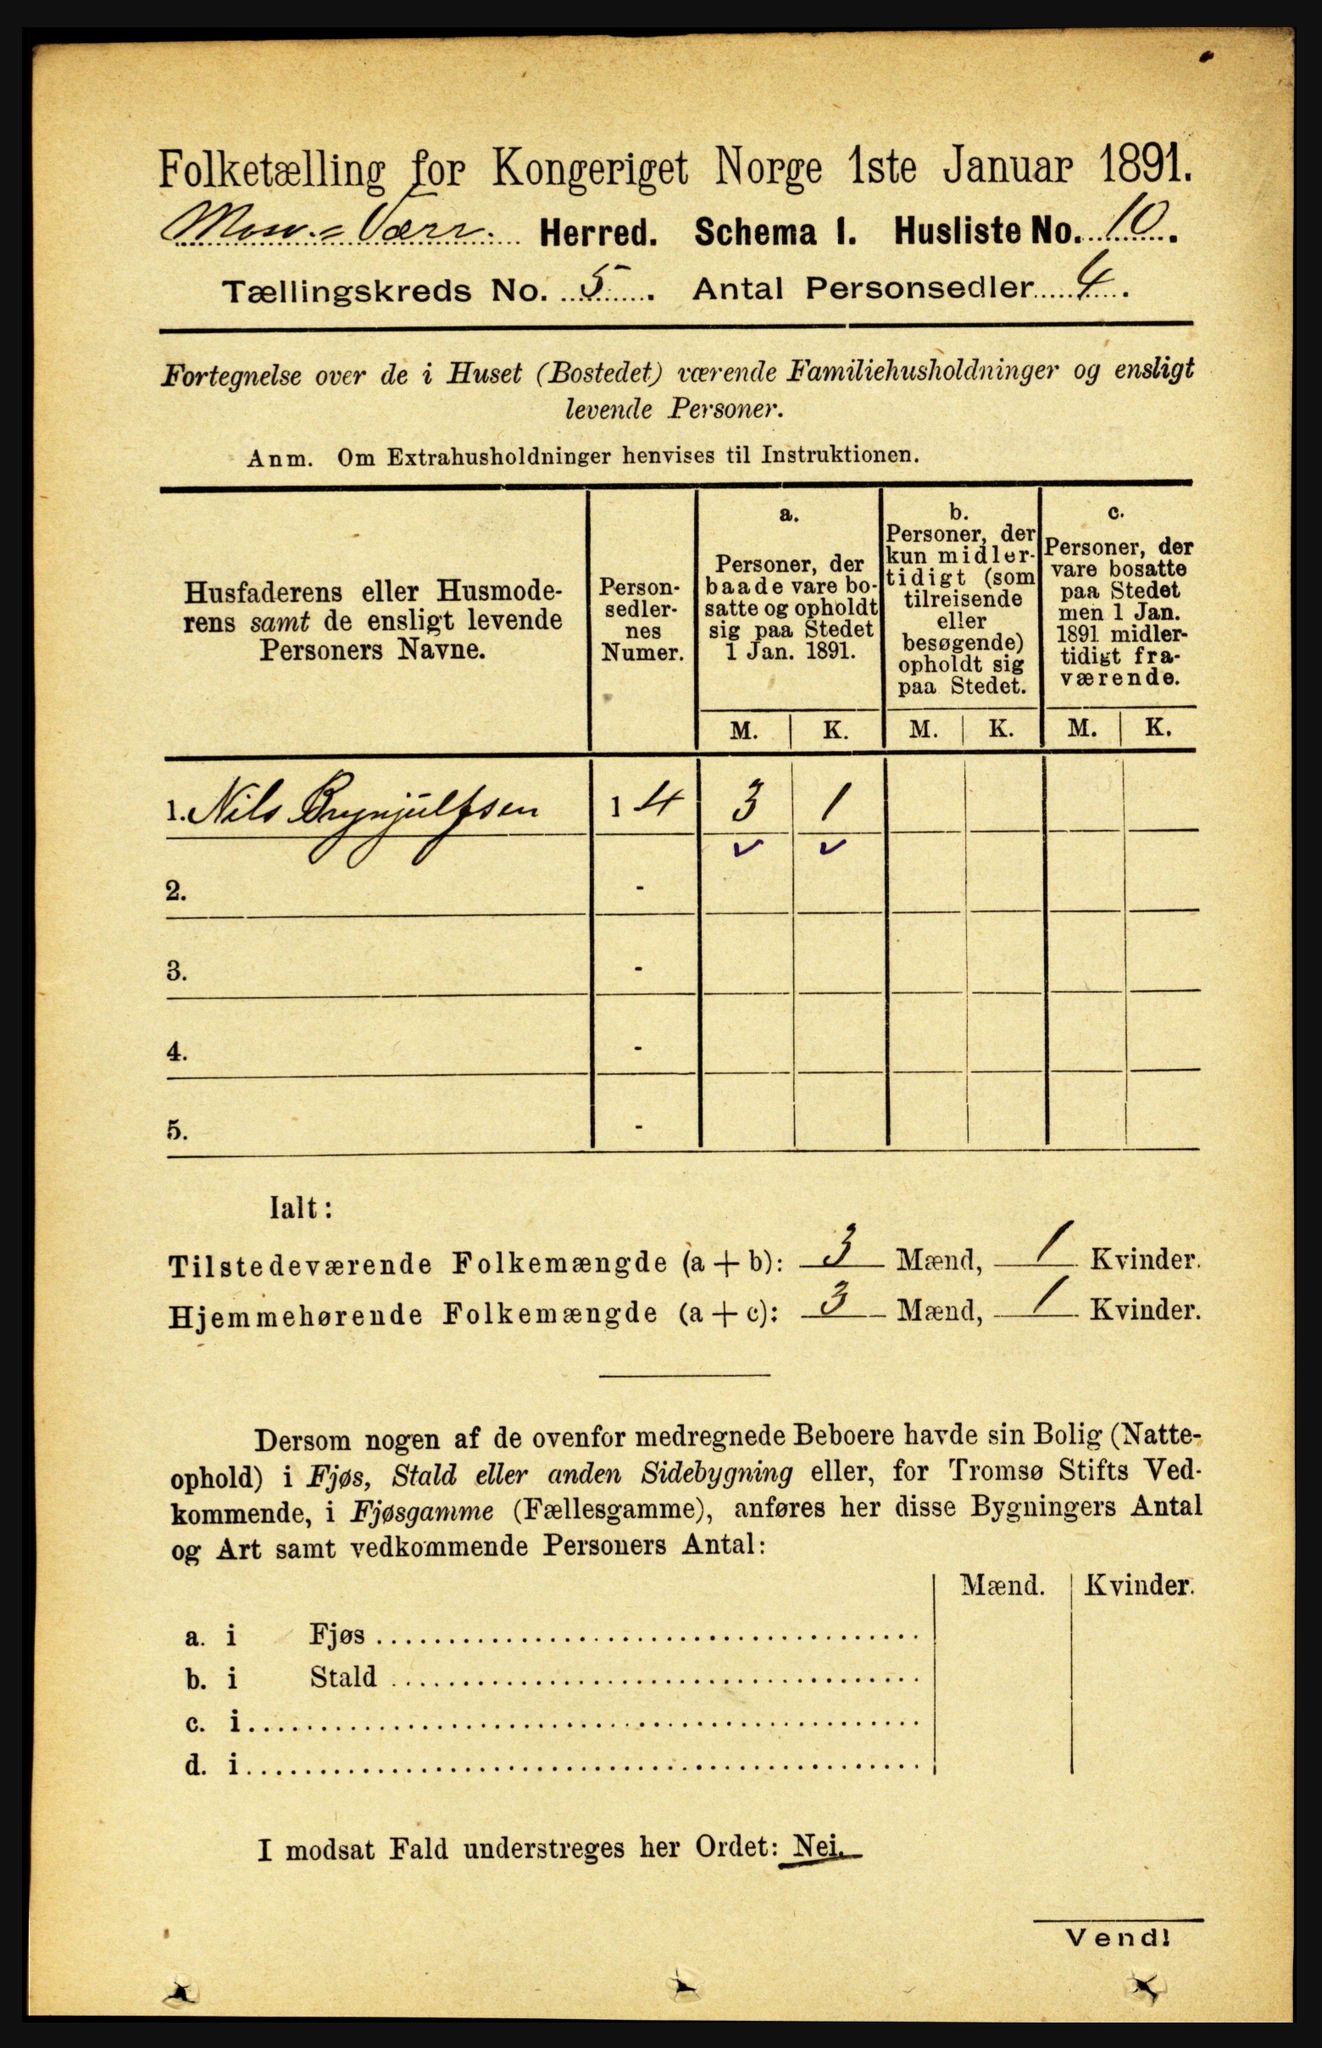 Folketælling for Kongeriget Norge 1ste Januar 1891.
Herred. Schema I. Husliste No. 10.
Tællingskreds No. 5. Antal Personsedler 4.
Fortegnelse over de i Huset (Bostedet) værende Familiehusholdninger og ensligt
levende Personer.
Anm. Om Extrahusholdninger henvises til Instruktionen.
Husfaderens eller Husmode-
rens samt de ensligt levende
Personers Navne.
Person-
sedler-
nes
Numer.
a.
Personer, der
baade vare bo-
satte og opholdt
sig paa Stedet
1 Jan. 1891.
b.
Personer, der
kun midler-
tidigt (som
tilreisende
eller
besøgende)
opholdt sig
paa Stedet.
c.
Personer, der
vare bosatte
paa Stedet
men 1 Jan.
1891 midler-
tidigt fra-
værende.
M. K. M. K. M. K.
1. Nils Brynjulfsen 1 4 3 1
2. -
3. -
4. -
5. -
Ialt:
Tilstedeværende Folkemængde (a + b): 3 Mænd, 1 Kvinder.
Hjemmehørende Folkemængde (a + c): 3 Mænd, 1 Kvinder.
Dersom nogen af de ovenfor medregnede Beboere havde sin Bolig (Natte-
ophold) i Fjøs, Stald eller anden Sidebygning eller, for Tromsø Stifts Ved-
kommende, i Fjøsgamme (Fællesgamme), anføres her disse Bygningers Antal
og Art samt vedkommende Personers Antal:
Mænd. Kvinder.
a. i Fjøs
b. i Stald
c. i
d. i
I modsat Fald understreges her Ordet: Nei.
Vend!